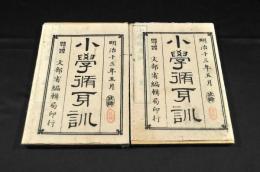 明治十三年五月
小學脩身訓
文部省編輯局印行
明治十三年五月
小學脩身訓
文部省編輯局印行